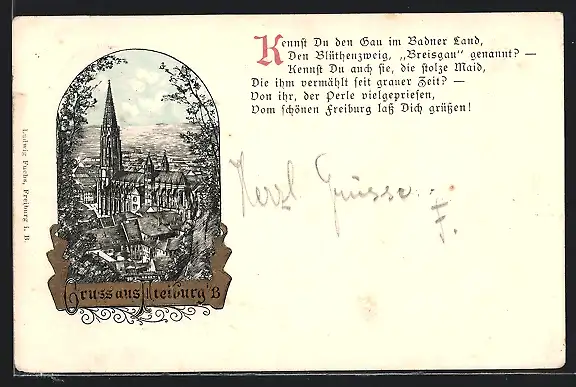 Kennst Du den Gau im Badner Land,
Den Blüthenzweig, „Breisgau" genannt? —
Kennst Du auch sie, die stolze Maid,
Die ihm vermählt seit grauer Zeit? —
Von ihr, der Perle vielgepriesen,
Vom schönen Freiburg laß Dich grüßen!
Herzl Grüsse.
F.
Gruss aus Freiburg i/B
Ludwig Fuchs, Freiburg i. B.